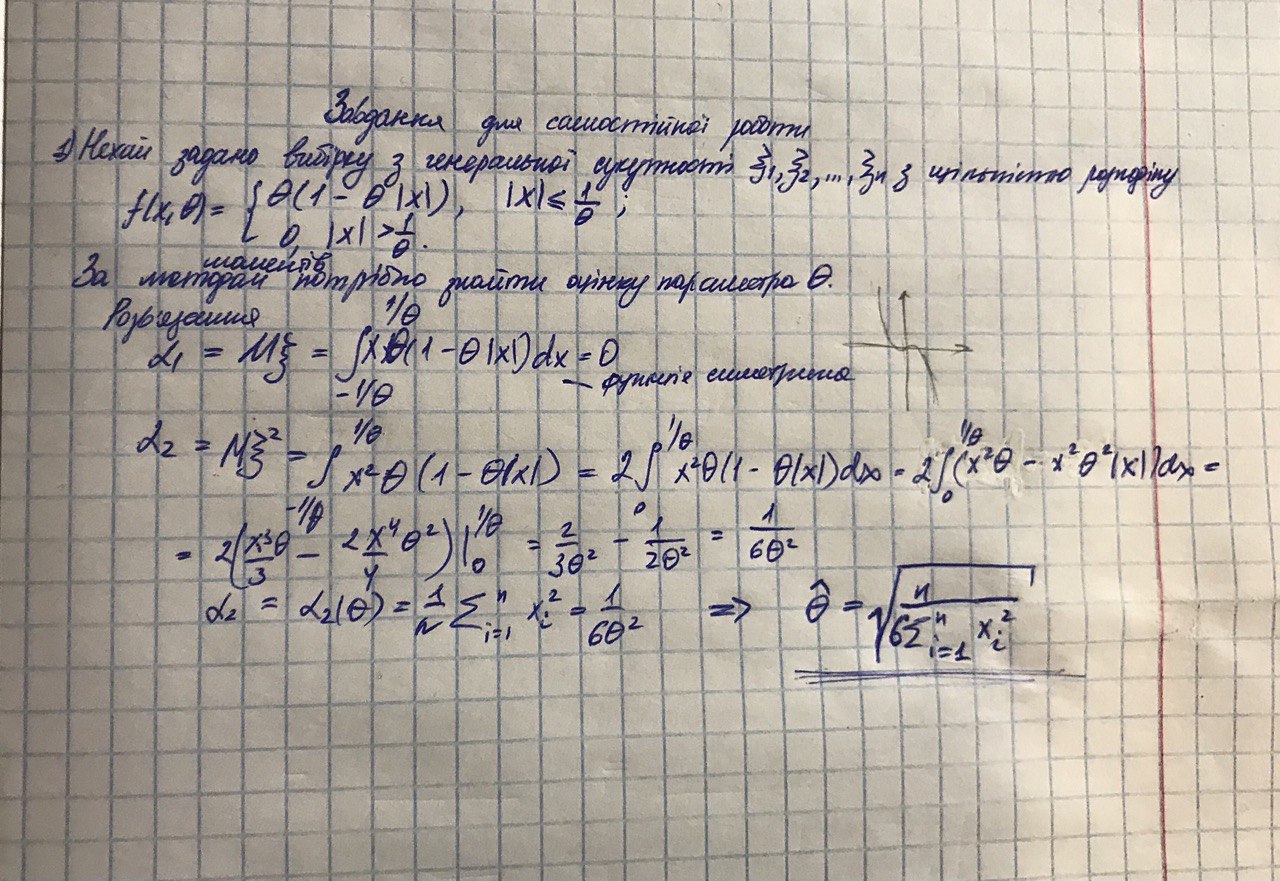 Завдання для самостійної роботи
1) Нехай задано вибірку з генеральної сукупності ξ₁, ξ₂, ..., ξn з щільністю розподілу
f(x, θ) = { θ(1 - θ|x|), |x| ≤ 1/θ ;
0, |x| > 1/θ.
моментів
За методом потрібно знайти оцінку параметра θ.
Розв'язання
α₁ = Mξ = ∫_{-1/θ}^{1/θ} xθ(1 - θ|x|) dx = 0
— функція симетрична
α₂ = Mξ² = ∫_{-1/θ}^{1/θ} x²θ(1 - θ|x|) = 2∫_0^{1/θ} x²θ(1 - θ|x|) dx = 2∫_0^{1/θ} (x²θ - x²θ²|x|) dx =
= 2(x³θ/3 - 2x⁴θ²/4)|_0^{1/θ} = 2/3θ² - 1/2θ² = 1/6θ²
α₂ = α₂(θ) = 1/n Σ_{i=1}^n x_i² = 1/6θ² => θ̂ = √(n/6Σ_{i=1}^n x_i²)